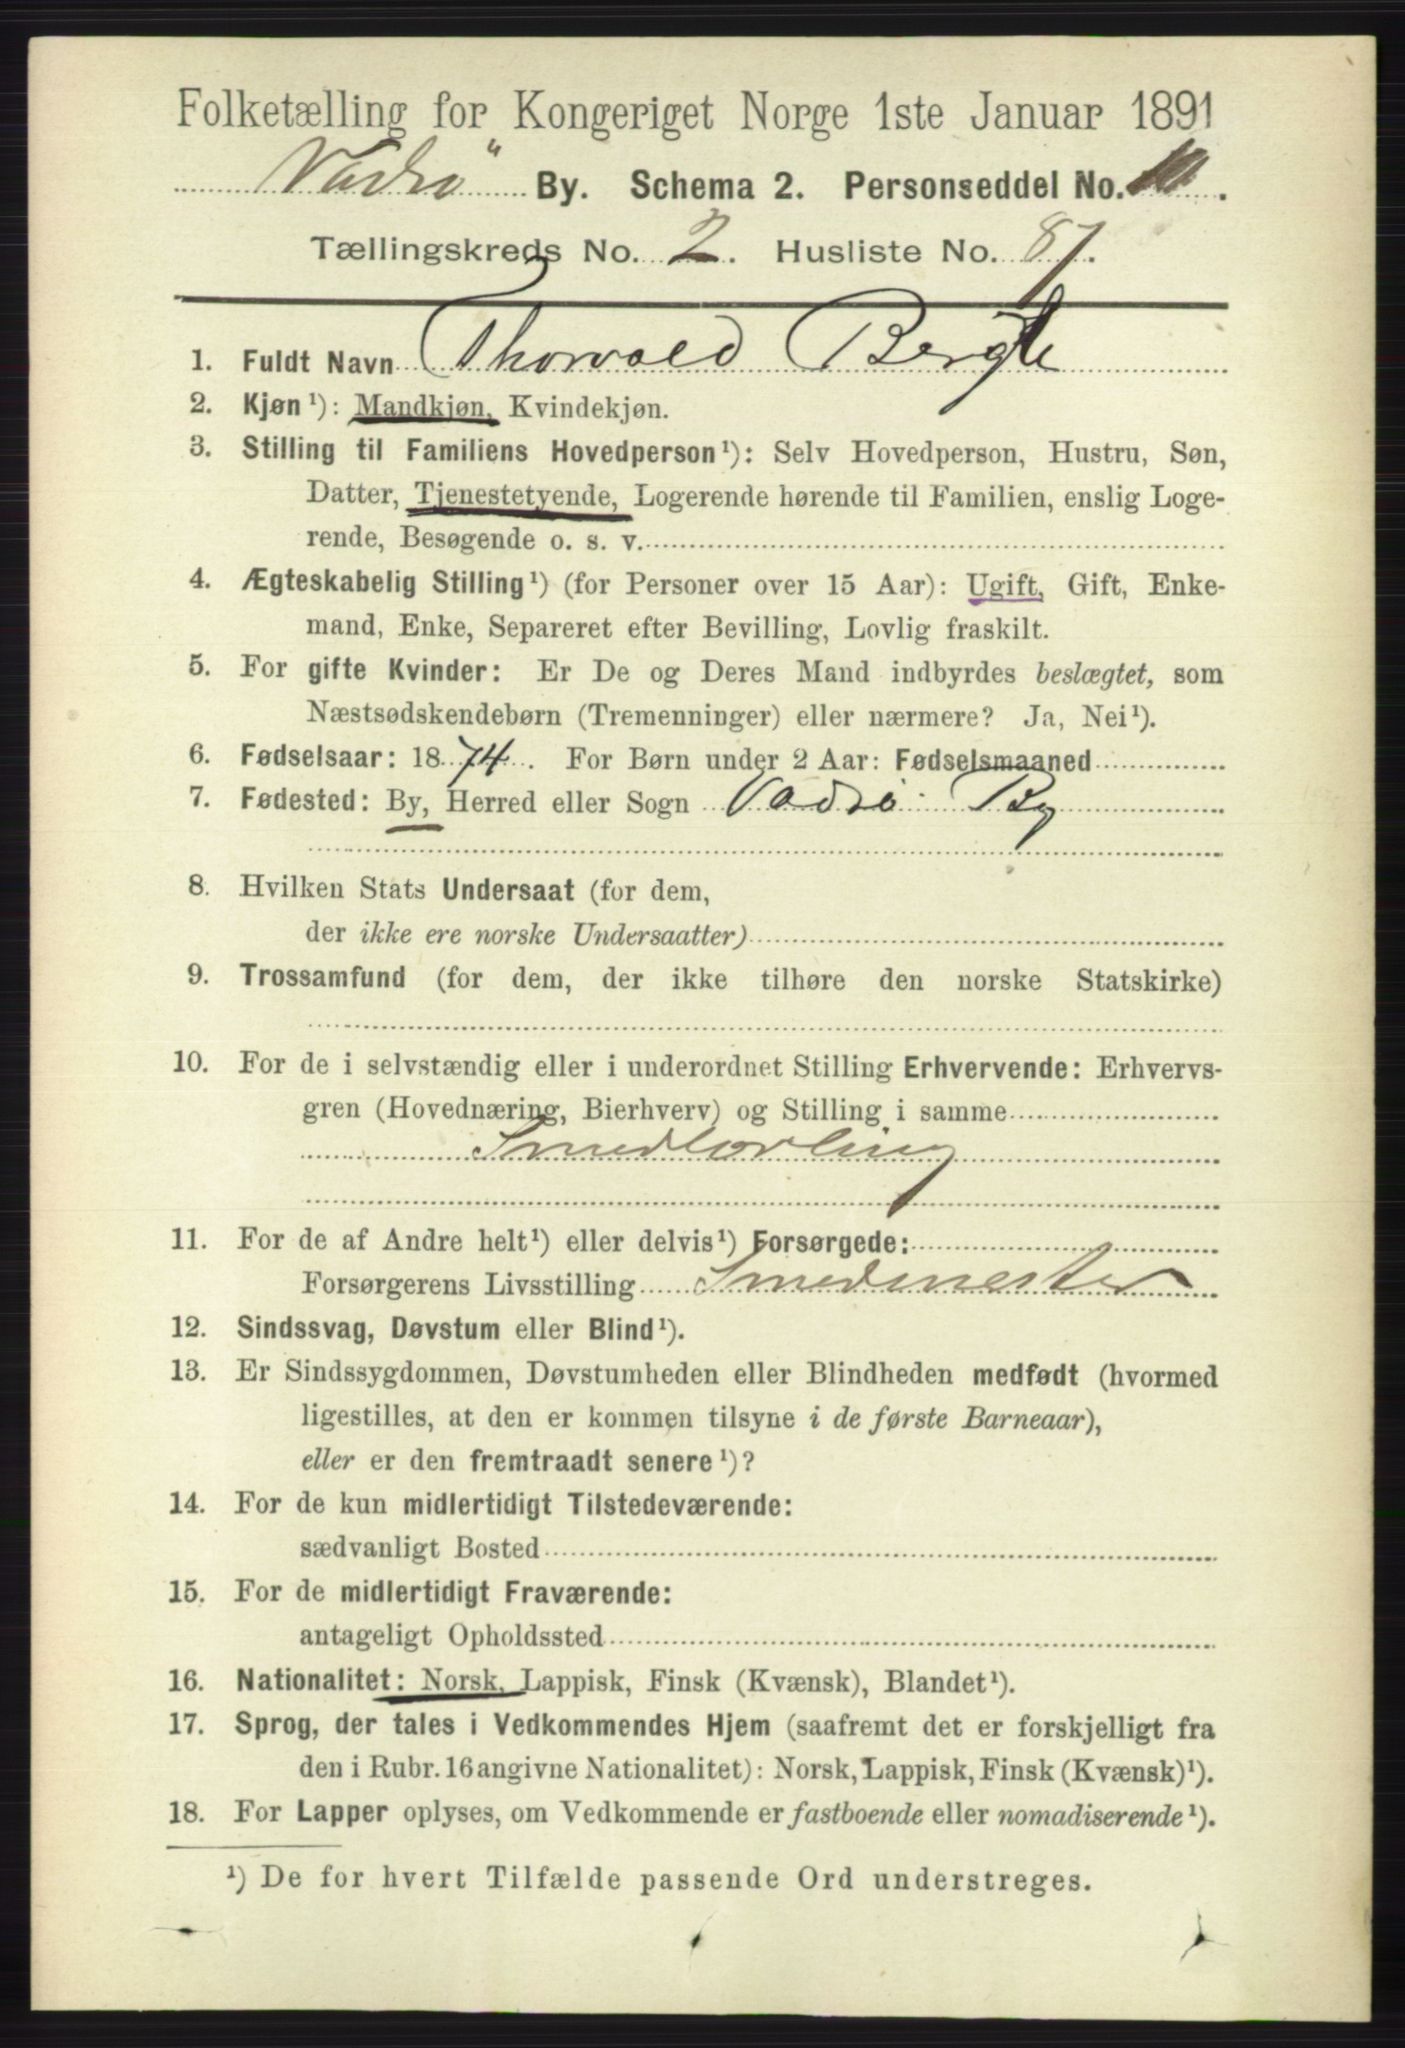 Folketælling for Kongeriget Norge 1ste Januar 1891
Vadsö By. Schema 2. Personseddel No. 10.
Tællingskreds No. 2. Husliste No. 87.
1. Fuldt Navn Thorvald
2. Kjøn¹): Mandkjøn, Kvindekjøn.
3. Stilling til Familiens Hovedperson¹): Selv Hovedperson, Hustru, Søn,
Datter, Tjenestetyende, Logerende hørende til Familien, enslig Loge-
rende, Besøgende o. s. v.
4. Ægteskabelig Stilling¹) (for Personer over 15 Aar): Ugift, Gift, Enke-
mand, Enke, Separeret efter Bevilling, Lovlig fraskilt.
5. For gifte Kvinder: Er De og Deres Mand indbyrdes beslægtet, som
Næstsødskendebørn (Tremenninger) eller nærmere? Ja, Nei¹).
6. Fødselsaar: 1874. For Børn under 2 Aar: Fødselsmaaned
7. Fødested: By, Herred eller Sogn Vadsö By
8. Hvilken Stats Undersaat (for dem,
der ikke ere norske Undersaatter)
9. Trossamfund (for dem, der ikke tilhøre den norske Statskirke)
10. For de i selvstændig eller i underordnet Stilling Erhvervende: Erhvervs-
gren (Hovednæring, Bierhverv) og Stilling i samme
Smedlærling
11. For de af Andre helt¹) eller delvis¹) Forsørgede:
Forsørgerens Livsstilling Smedmester
12. Sindssvag, Døvstum eller Blind¹).
13. Er Sindssygdommen, Døvstumheden eller Blindheden medfødt (hvormed
ligestilles, at den er kommen tilsyne i de første Barneaar),
eller er den fremtraadt senere¹)?
14. For de kun midlertidigt Tilstedeværende:
sædvanligt Bosted
15. For de midlertidigt Fraværende:
antageligt Opholdssted
16. Nationalitet: Norsk, Lappisk, Finsk (Kvænsk), Blandet¹).
17. Sprog, der tales i Vedkommendes Hjem (saafremt det er forskjelligt fra
den i Rubr. 16 angivne Nationalitet): Norsk, Lappisk, Finsk (Kvænsk)¹).
18. For Lapper oplyses, om Vedkommende er fastboende eller nomadiserende¹).
¹) De for hvert Tilfælde passende Ord understreges.